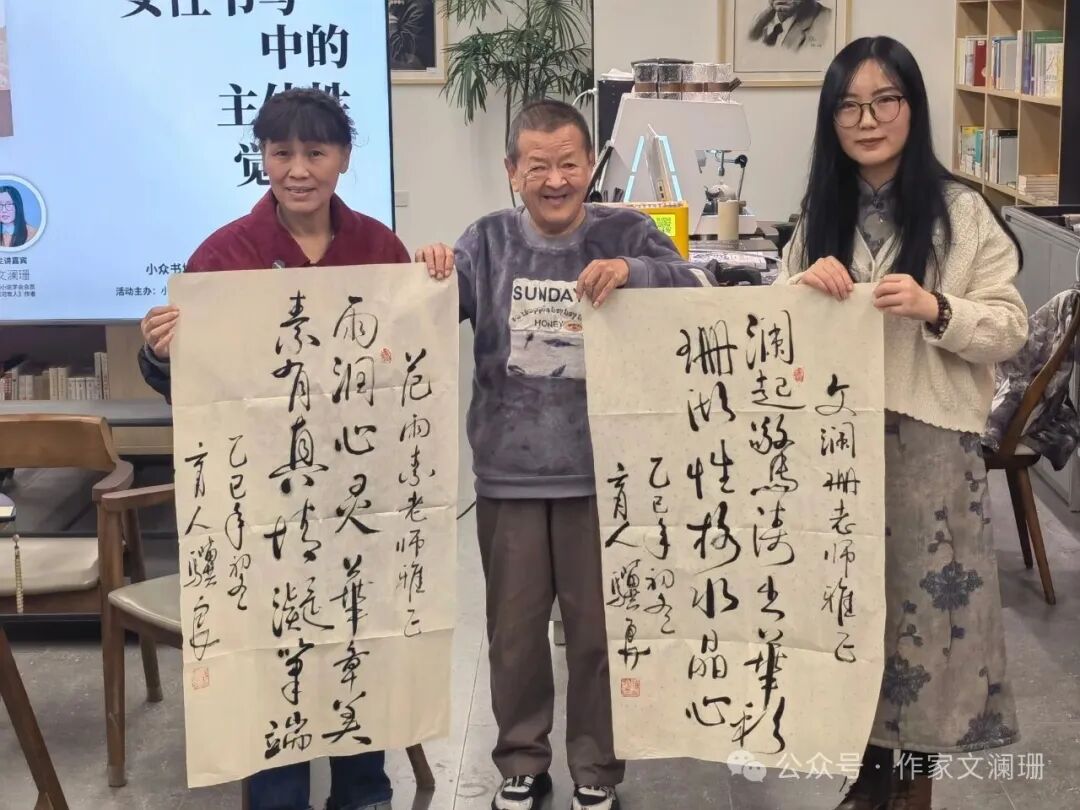 中的
觉
主讲嘉宾
文澜珊
小说学会会员
作者
小众书
活动主办：小
范雨素老师雅正
雨润心灵華章美
素有真情凝筆端
乙巳年初冬
育人
SUNDAY
HONEY
文澜珊老师雅正
澜起驚涛華彩
珊瑚性格水晶心
乙巳年初冬
育人
公众号·作家文澜珊